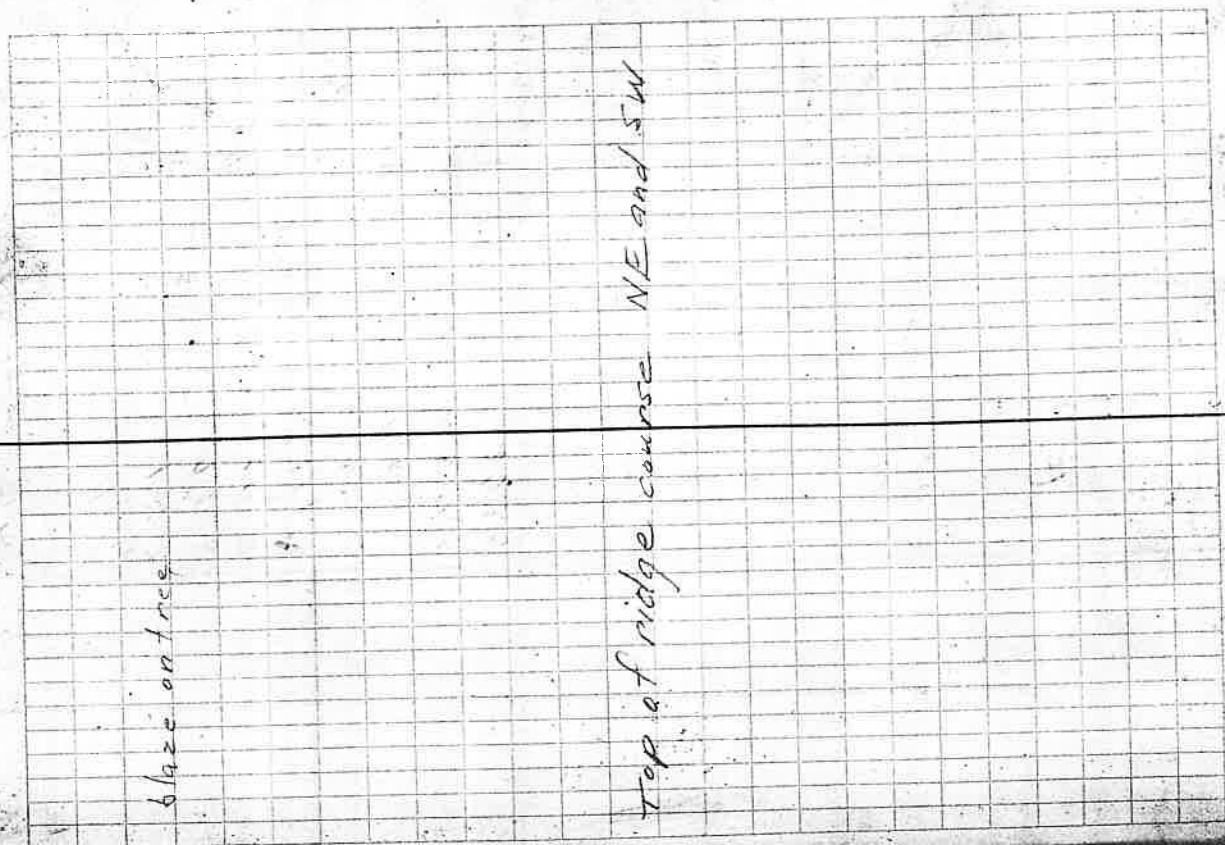 blaze on tree
Top of ridge course NE and SW